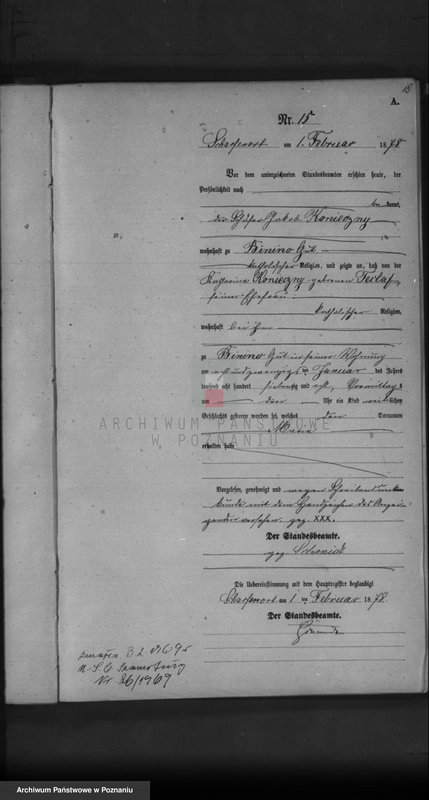 15
A.
Nr. 15
Scharfenort am 1. Februar 1878
Vor dem unterzeichneten Standesbeamten erschien heute, der
Persönlichkeit nach
be kannt,
der Schäfer Jakob Konieczny
wohnhaft zu Binino Gut
katholischer Religion, und zeigte an, daß von der
Katharina Konieczny geborenen
seiner Ehefrau
katholischer Religion,
wohnhaft bei ihm
zu Binino Gut in seiner Wohnung
am acht und zwanzigsten Januar des Jahres
tausend acht hundert siebenzig und acht, Vormittags
um drei Uhr ein Kind weiblichen
Geschlechts geboren worden sei, welches den Vornamen
Maria
erhalten habe
ARCHIWUM PAŃSTWOWE
W POZNANIU
Vorgelesen, genehmigt und wegen Schreibensunkunde
mit dem Handzeichen des
versehen. gez. XXX.
Der Standesbeamte.
gez.
Die Uebereinstimmung mit dem Hauptregister beglaubigt
Scharfenort am 1 ten Februar 1878.
Der Standesbeamte.
zmarła 3.2.1969 r
Nr. 26/1969
Archiwum Państwowe w Poznaniu